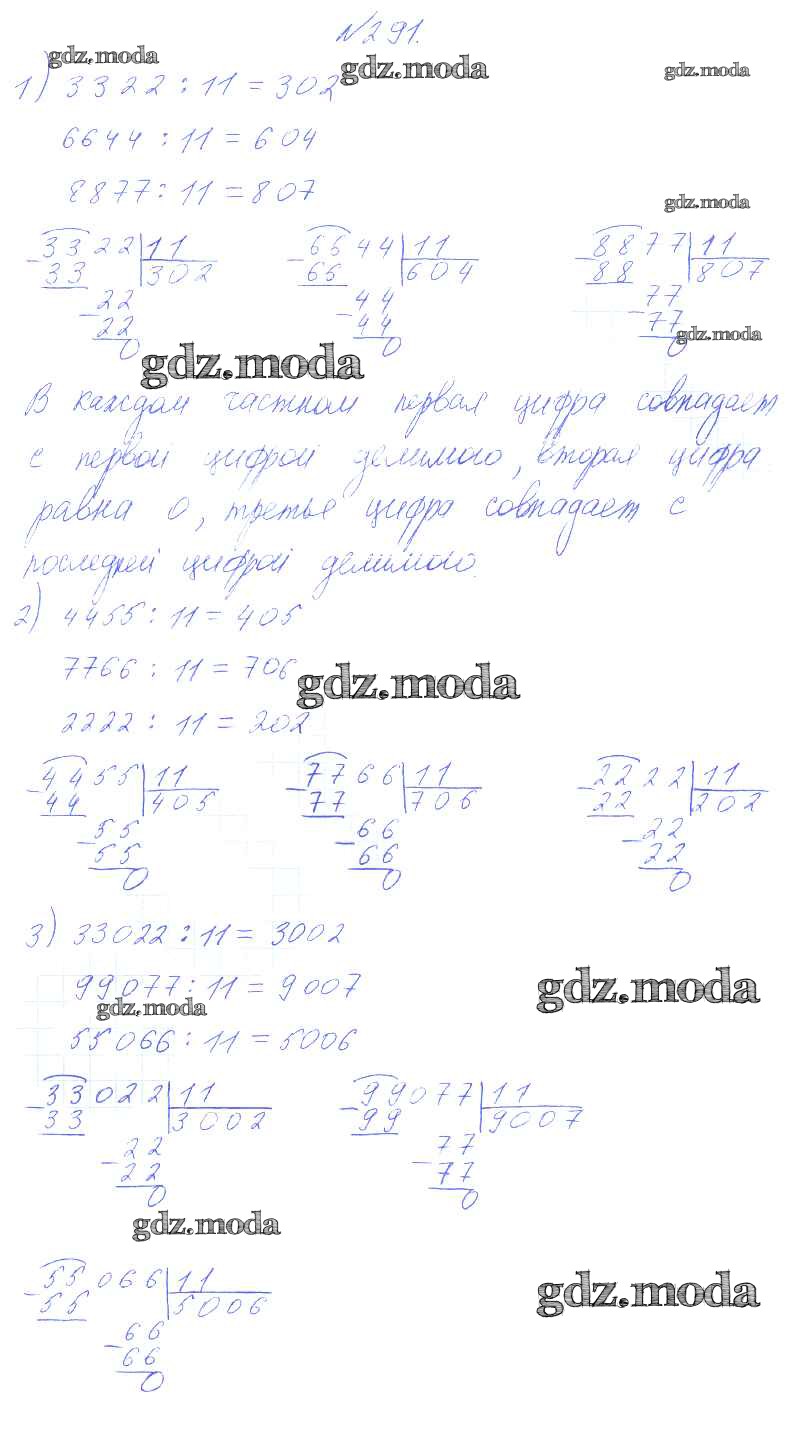 №291.
gdz.moda
gdz.moda
gdz.moda
1) 3322 : 11 = 302
6644 : 11 = 604
8877 : 11 = 807
gdz.moda
3322 | 11
33 | 302
22
22
0
6644 | 11
66 | 604
44
44
0
8877 | 11
88 | 807
77
77
0
gdz.moda
gdz.moda
В каждом частном первая цифра совпадает
с первой цифрой делимого, вторая цифра
равна 0, третье цифра совпадает с
последней цифрой делимого.
2) 4455 : 11 = 405
7766 : 11 = 706
gdz.moda
2222 : 11 = 202
4455 | 11
44 | 405
55
55
0
7766 | 11
77 | 706
66
66
0
2222 | 11
22 | 202
22
22
0
3) 33022 : 11 = 3002
99077 : 11 = 9007
gdz.moda
gdz.moda
55066 : 11 = 5006
33022 | 11
33 | 3002
22
22
0
99077 | 11
99 | 9007
77
77
0
gdz.moda
55066 | 11
55 | 5006
66
66
0
gdz.moda